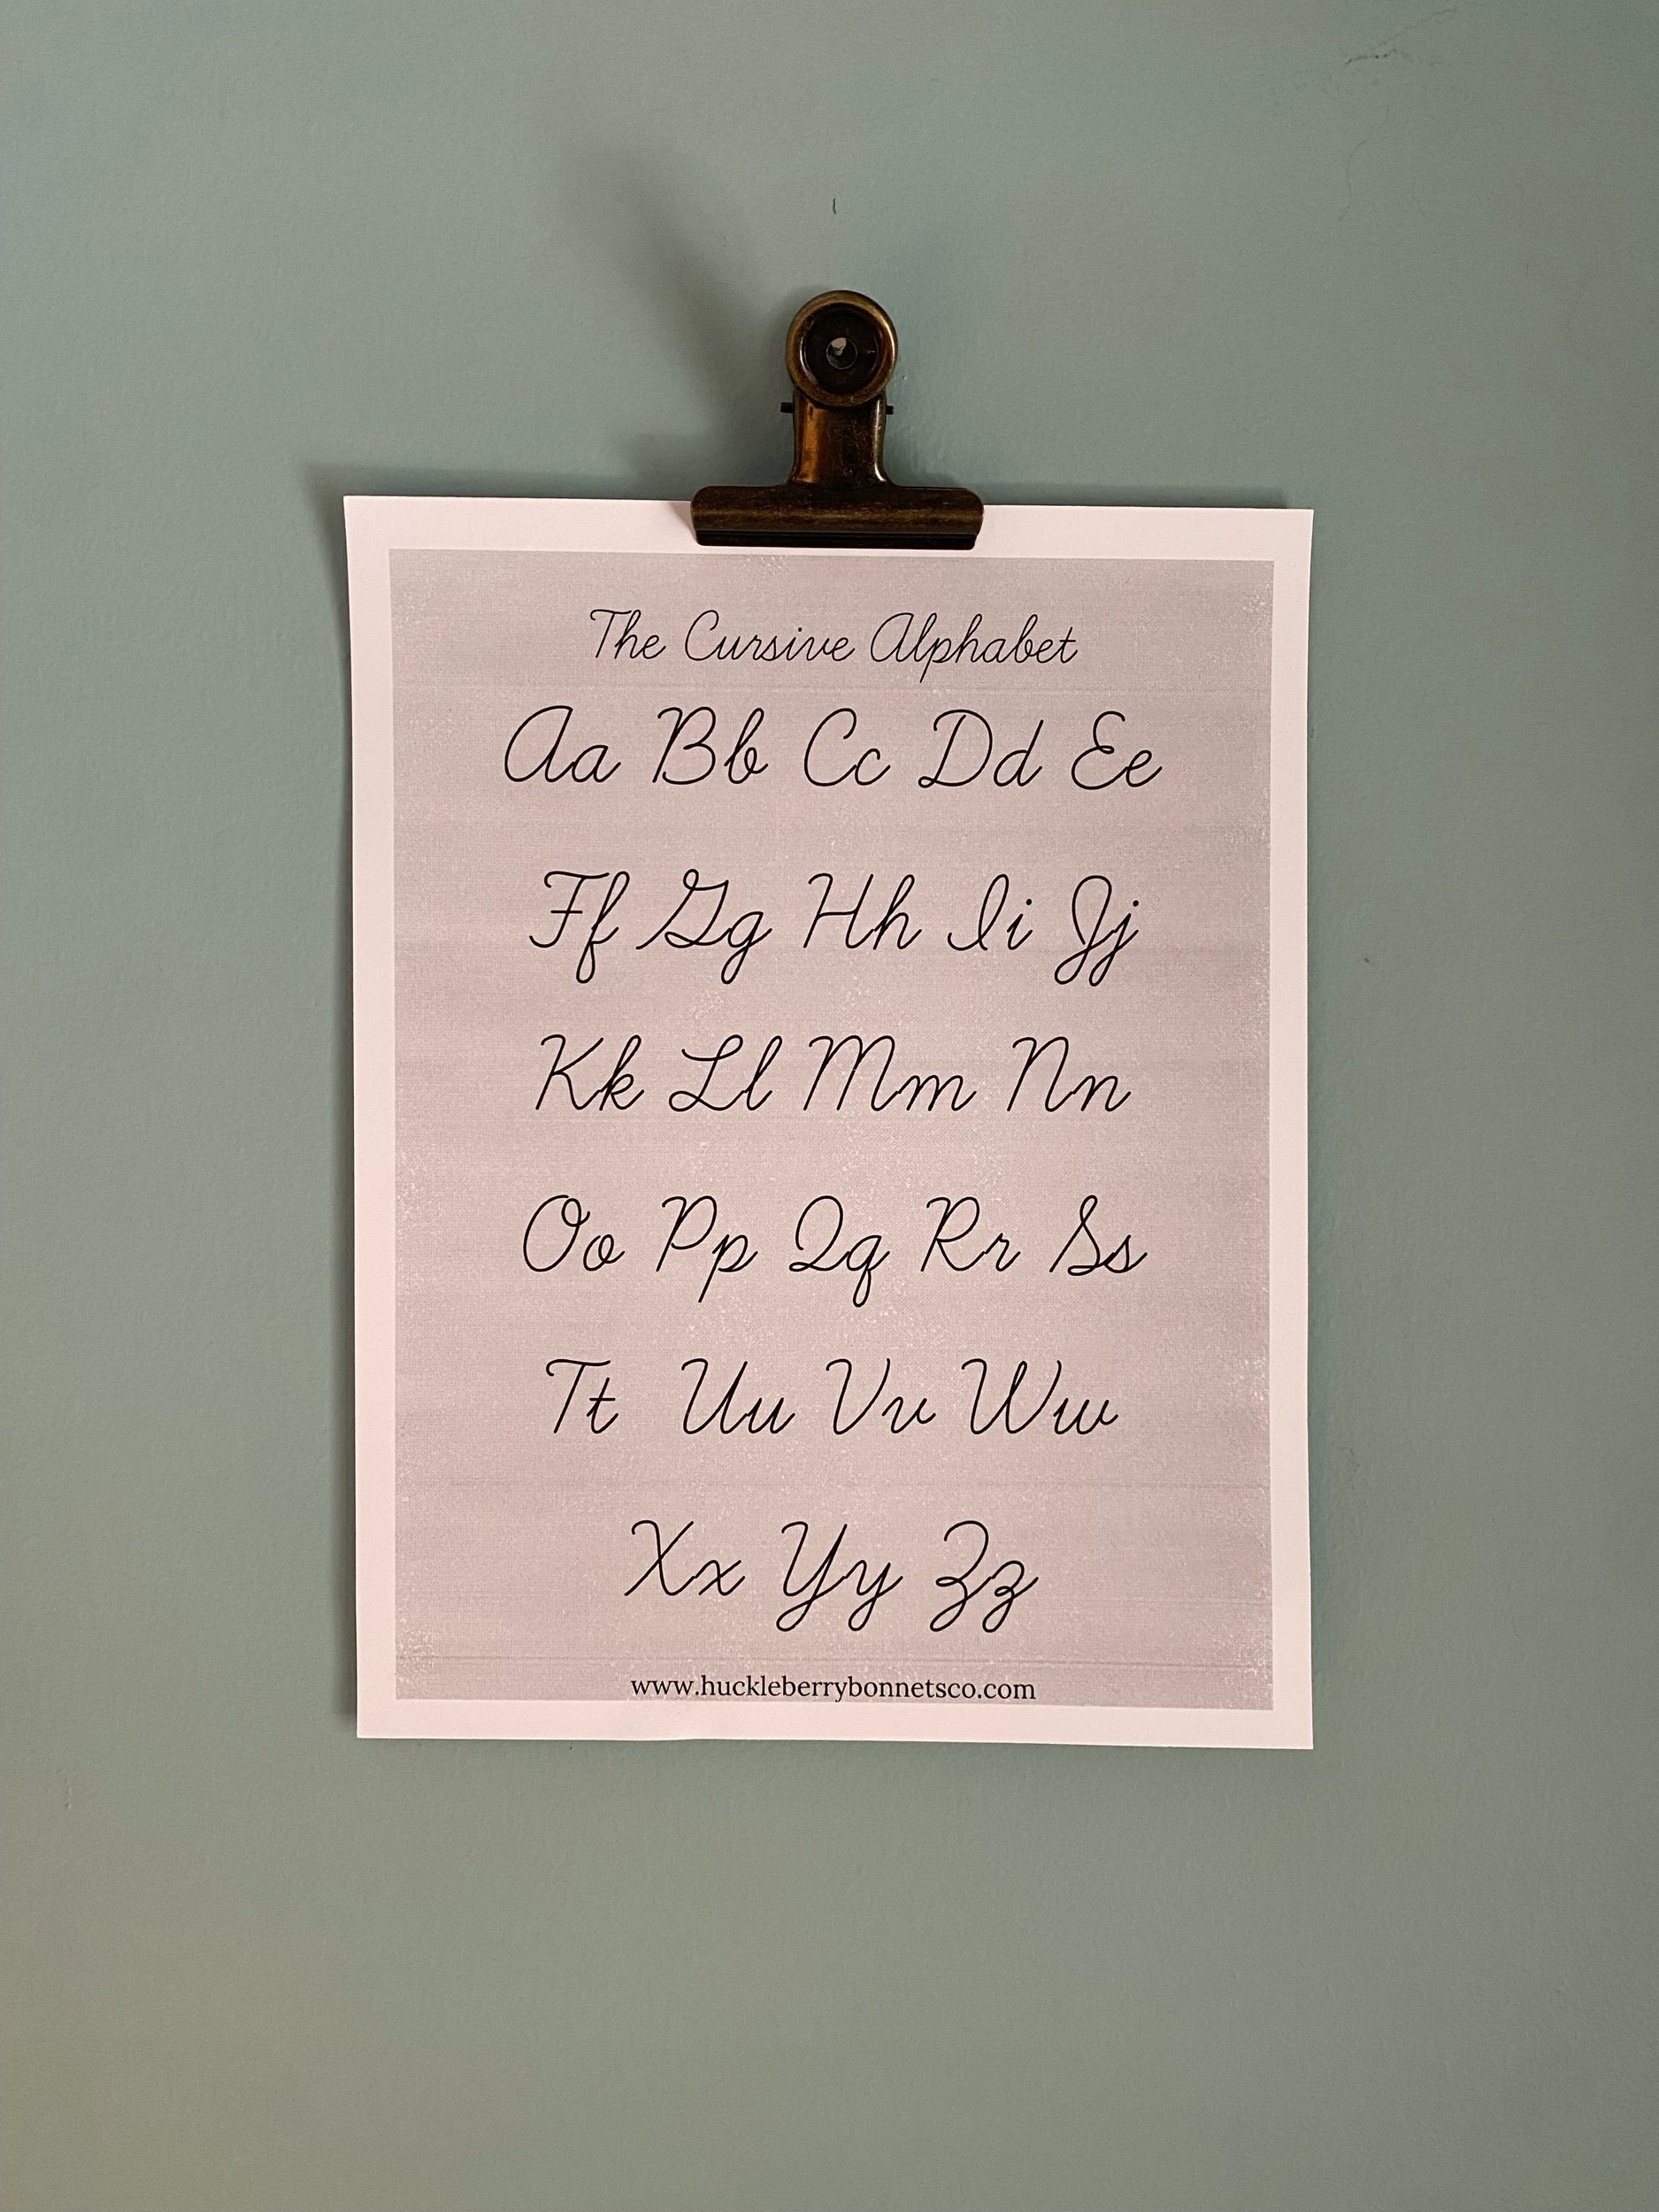 The Cursive Alphabet
Aa Bb Cc Dd Ee
Ff Gg Hh Ii Jj
Kk Ll Mm Nn
Oo Pp Qq Rr Ss
Tt Uu Vv Ww
Xx Yy Zz
www.huckleberrybonnetsco.com